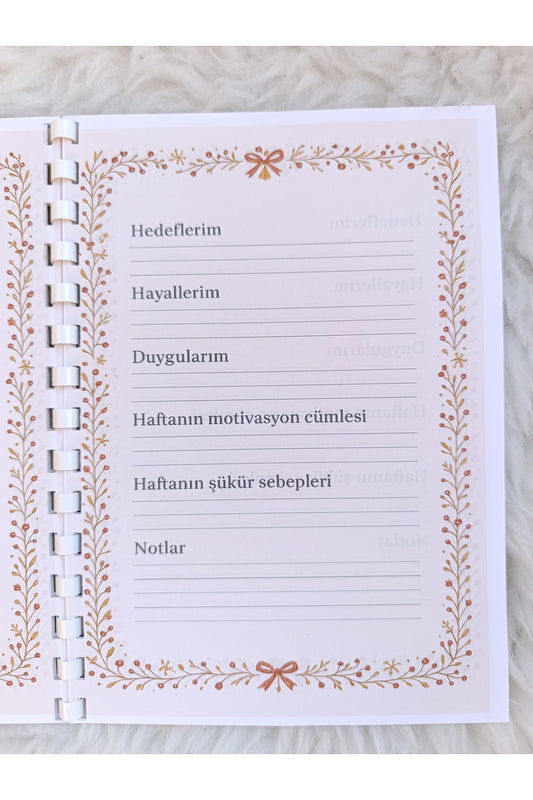 Hedeflerim
Hayallerim
Duygularım
Haftanın motivasyon cümlesi
Haftanın şükür sebepleri
Notlar